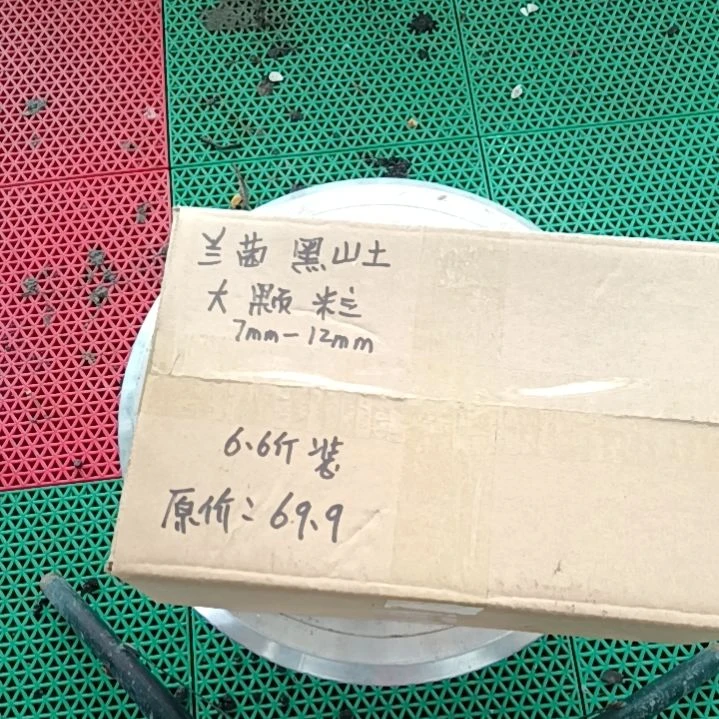 兰菌 黑山土
大 颗 粒
7mm-12mm
6.6斤 装
原价:69.9